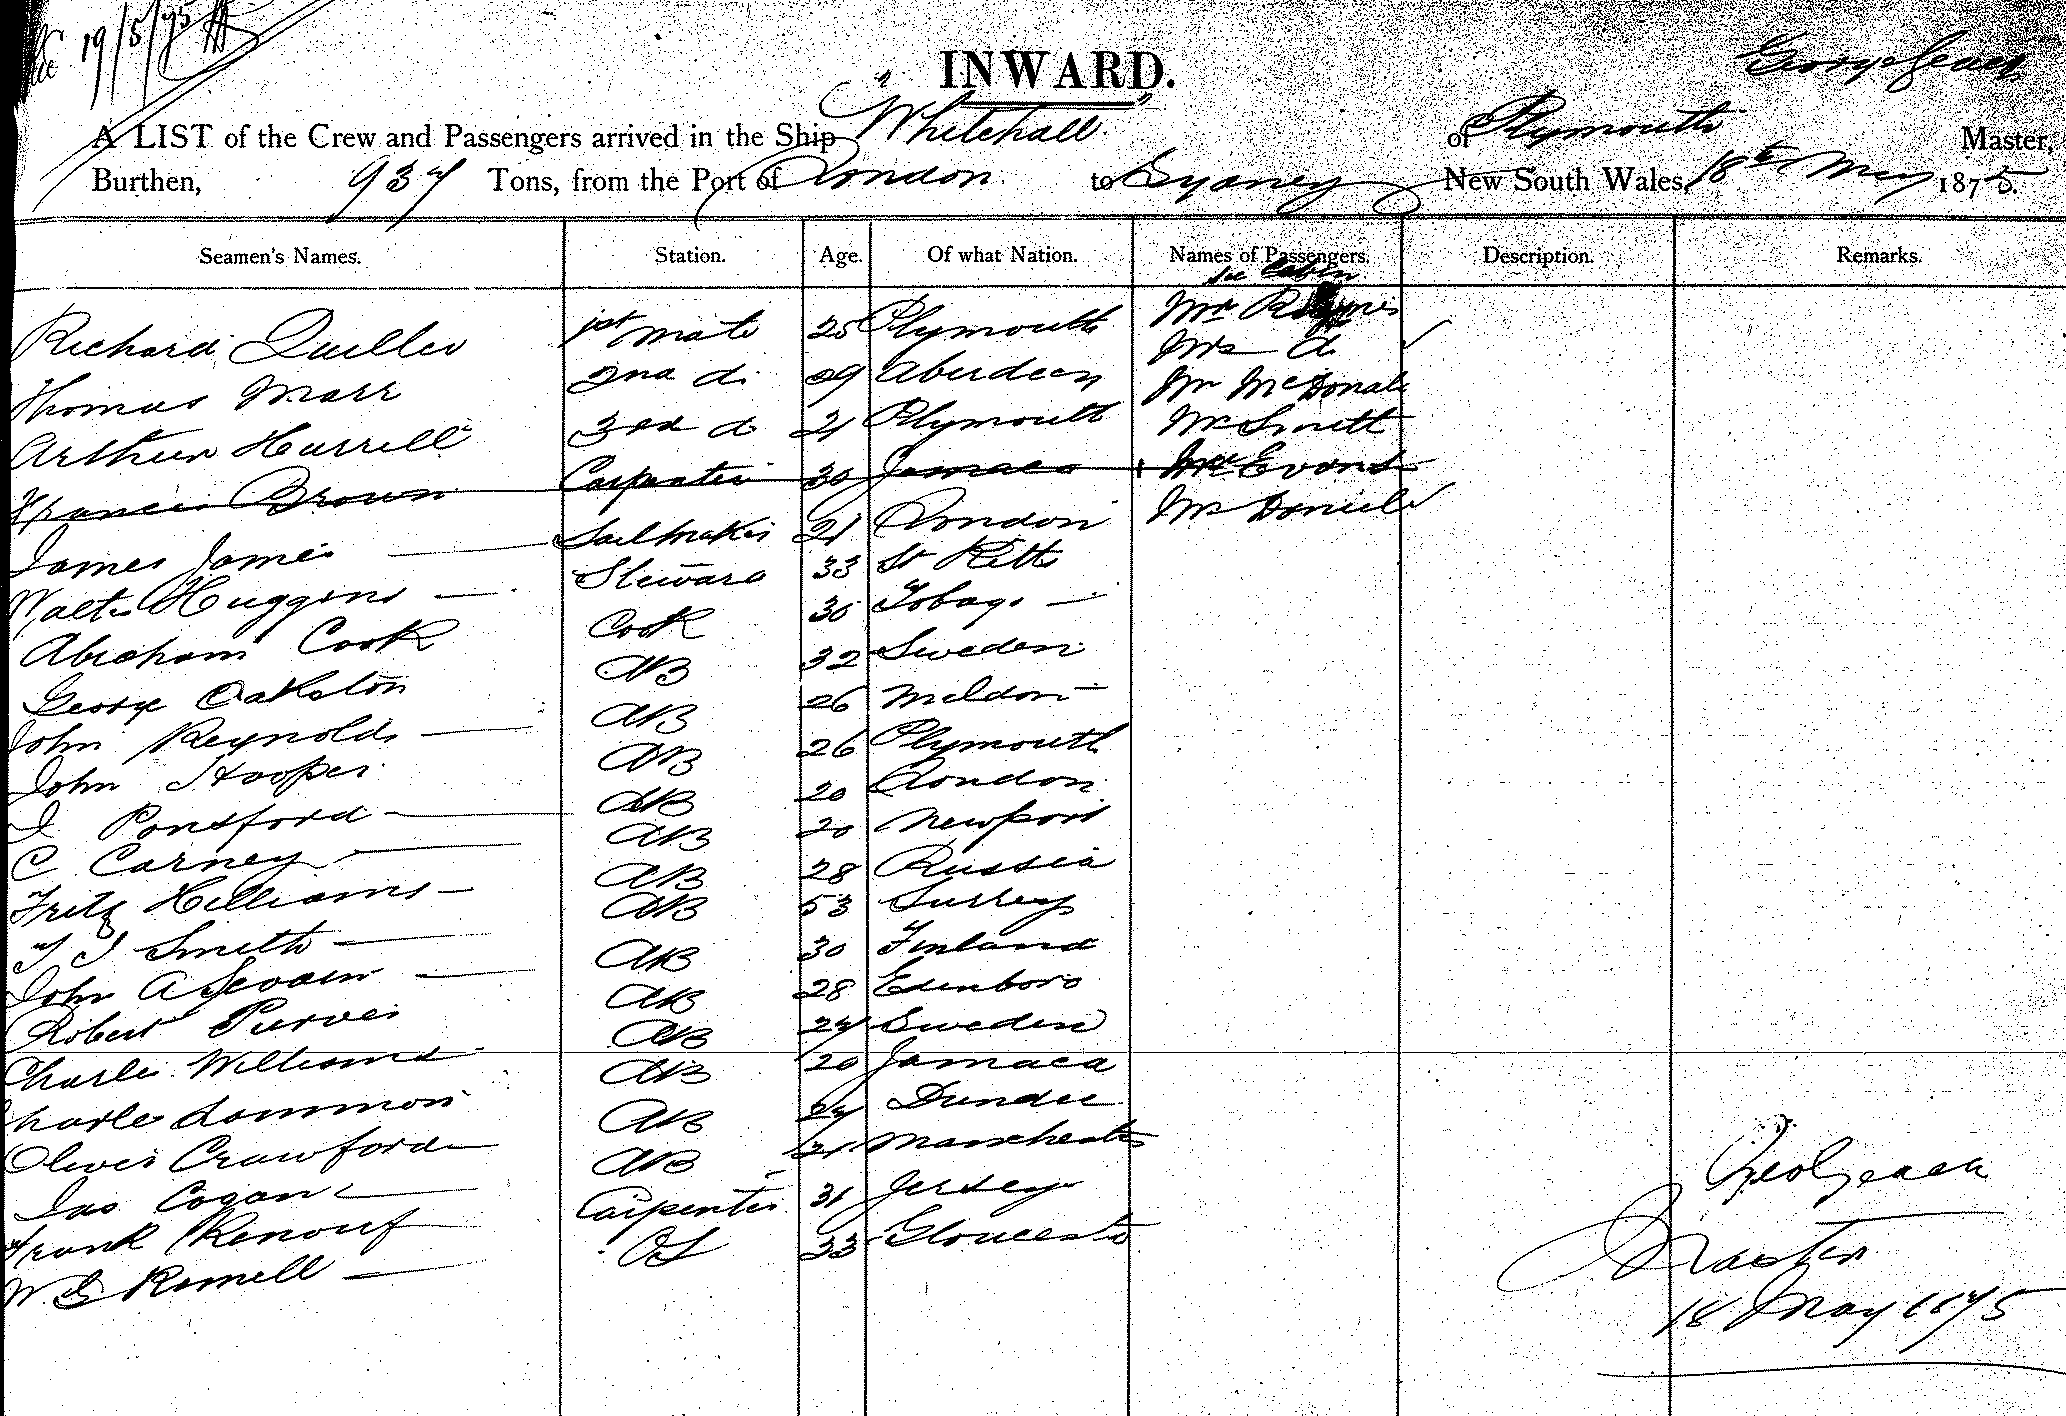 19/5/75
INWARD.
George Geach
A LIST of the Crew and Passengers arrived in the Ship "Whitehall" of Plymouth Master,
Burthen, 937 Tons, from the Port of London to Sydney New South Wales, 18th May 1875.
Seamen's Names. Station. Age. Of what Nation. Names of Passengers. Description. Remarks.
In Cabin
Richard Quiller 1st Mate 25 Plymouth Mr
Thomas Marr 2nd do 29 Aberdeen Mrs do
Arthur Hurrell 3rd do 21 Plymouth Mr McDonald
Francis Brown Carpenter 30 Jamaca Mr Smith
James James Sailmaker 21 London Evans
Walter Huggins Steward 33 St Kitts Mr Daniels
Abraham Cook Cook 36 Tobago
George Oakston AB 32 Sweden
John Reynolds AB 26 Meldon
John Hooper AB 26 Plymouth
J Ponsford AB 20 London
C Carney AB 20 Newport
Fritz Hilliams AB 28 Russia
Smith AB 53 Surrey
John A AB 30 Finland
Robert Purves AB 28 Edenboro
Charle Williams AB 24 Sweden
Charle AB 20 Jamaca
Oliver Crawford AB 24 Dundee
Jas Cogan AB 21 Manchester
Frank Renouf Carpenter 31 Jersey
W. G. OS 33 Gloucester
Geo Geach
Master
18 May 1875